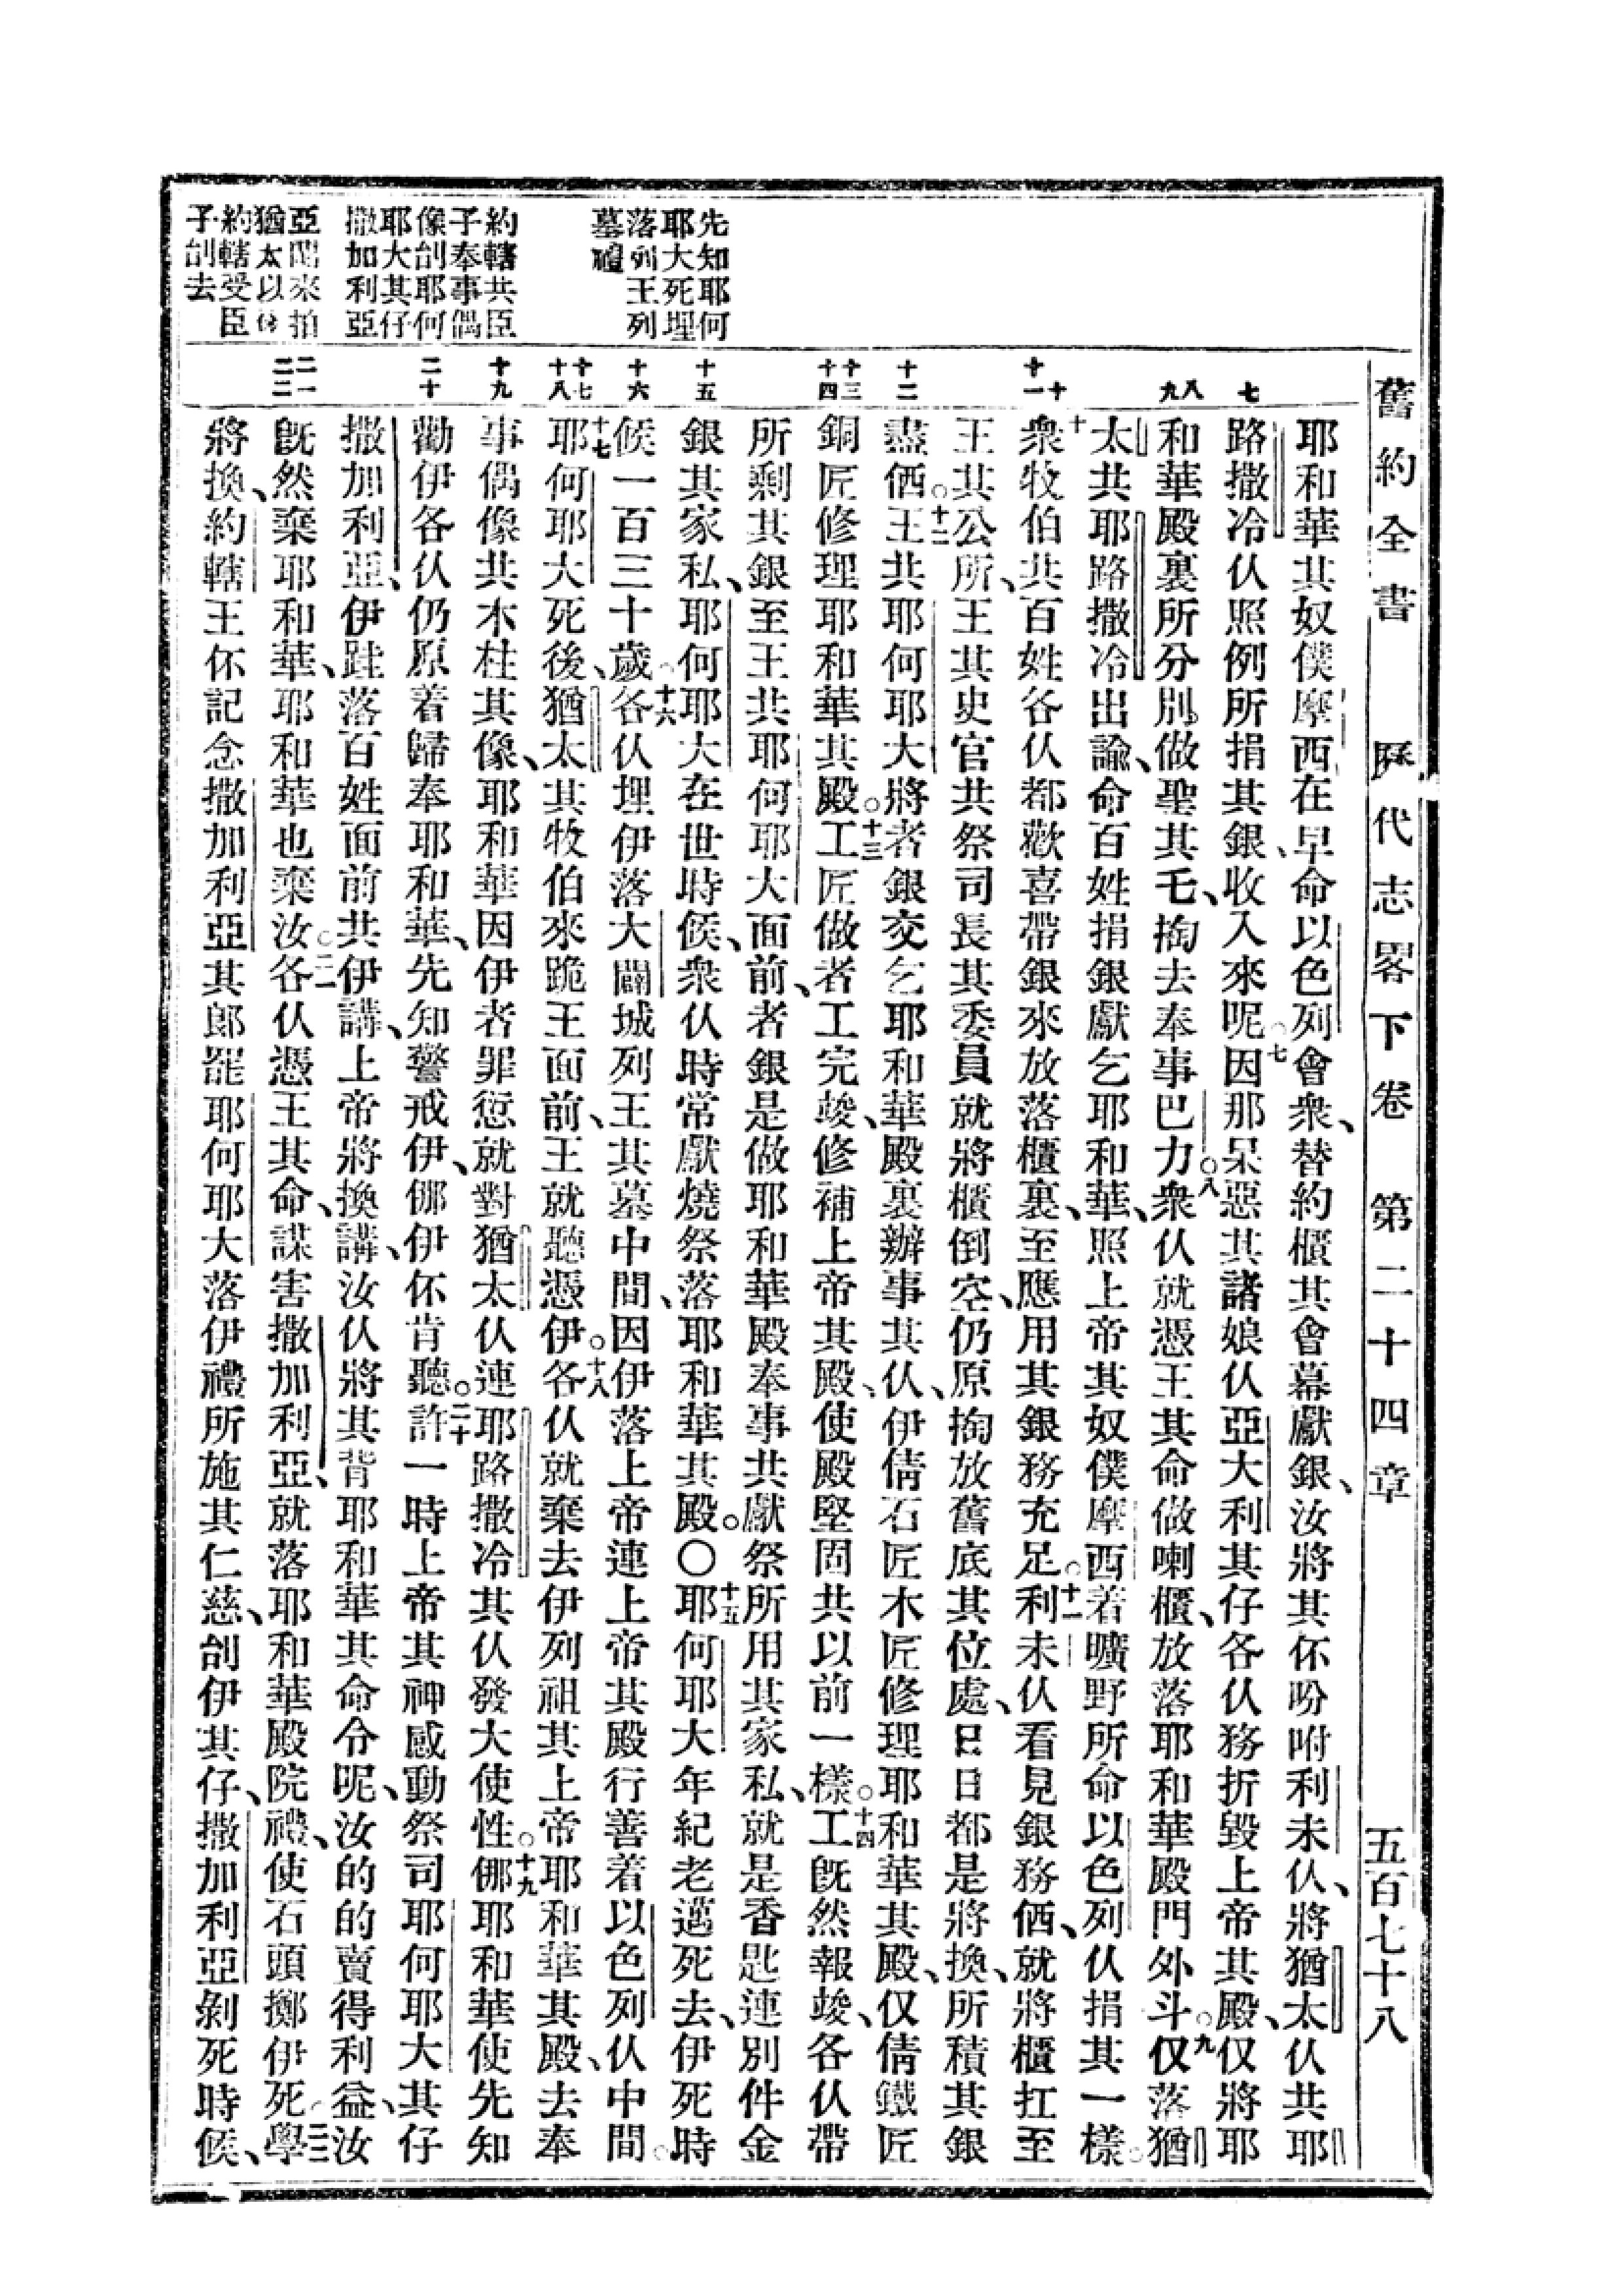 舊約全書 歷代志畧下卷 第二十四章 五百七十八
先知耶何
耶大死埋
落列王列
墓禮
約轄共臣
子奉事偶
像刣耶何
耶大其仔
撒加利亞
亞蘭來拍
猶太以
約轄受臣
子刣去
七
八
九
十
十一
十二
十三
十四
十五
十六
十七
十八
十九
二十
二一
二二
耶和華其奴僕摩西在早命以色列會衆、替約櫃其會幕獻銀、汝將其伓吩咐利未仈、將猶太仈共耶
路撒冷仈照例所捐其銀、收入來呢。七因那呆惡其諸娘仈亞大利其仔各仈務折毀上帝其殿、仅將耶
和華殿裏所分別、做聖其乇、掏去奉事巴力。八衆仈就憑王其命做喇櫃、放落耶和華殿門外斗。九仅落猶
太共耶路撒冷出諭、命百姓捐銀獻乞耶和華、照上帝其奴僕摩西着曠野所命以色列仈捐其一樣。
十衆牧伯共百姓各仈都歡喜帶銀來放落櫃裏、至應用其銀務充足。十一利未仈看見銀務価、就將櫃扛至
王其公所、王其史官共祭司長其委員就將櫃倒空、仍原掏放舊底其位處、日日都是將換、所積其銀
盡価。十二王共耶何耶大將者銀交乞耶和華殿裏辦事其仈、伊倩石匠木匠修理耶和華其殿、仅倩鐵匠
銅匠修理耶和華其殿。十三工匠做者工完竣、修補上帝其殿、使殿堅固共以前一樣。十四工旣然報竣、各仈帶
所剩其銀至王共耶何耶大面前、者銀是做耶和華殿奉事共獻祭所用其家私、就是香匙連別件金
銀其家私、耶何耶大在世時候、衆仈時常獻燒祭落耶和華其殿。〇十五耶何耶大年紀老邁死去、伊死時
候一百三十歲。十六各仈埋伊落大闢城列王其墓中間、因伊落上帝連上帝其殿行善着以色列仈中間。
十七耶何耶大死後、猶太其牧伯來跪王面前、王就聽憑伊。十八各仈就棄去伊列祖其上帝耶和華其殿、去奉
事偶像共木柱其像、耶和華因伊者罪愆就對猶太仈連耶路撒冷其仈發大使性。十九㑚耶和華使先知
勸伊各仈仍原着歸奉耶和華、先知警戒伊、㑚伊伓肯聽。二十許一時上帝其神感動祭司耶何耶大其仔
撒加利亞、伊跬落百姓面前共伊講、上帝將換講、汝仈將其背耶和華其命令呢、汝的的賣得利益、汝
旣然棄耶和華、耶和華也棄汝。二一各仈憑王其命、謀害撒加利亞、就落耶和華殿院禮、使石頭擲伊死。二二學
將換、約轄王伓記念撒加利亞其郎罷耶何耶大落伊禮所施其仁慈、刣伊其仔、撒加利亞剝死時候、